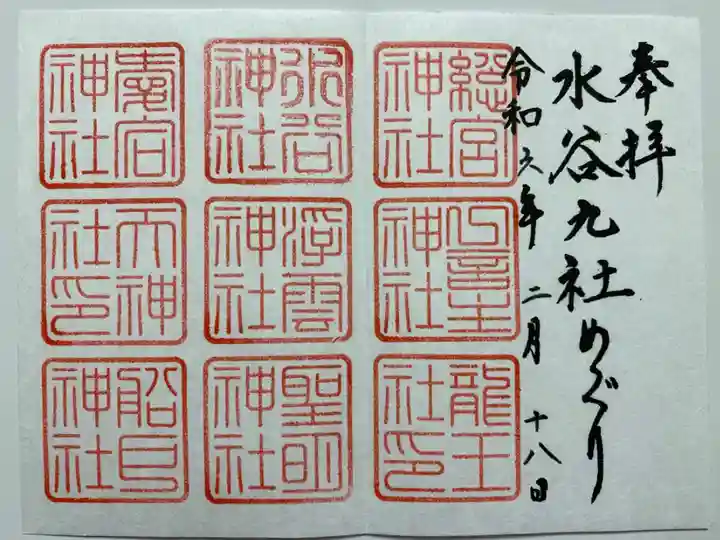 奉拝
水谷九社めぐり
令和六年 二月 十八日
総宮神社
水谷神社
愛宕神社
八幡神社
浮雲神社
天神社印
龍王社印
聖明神社
船玉神社